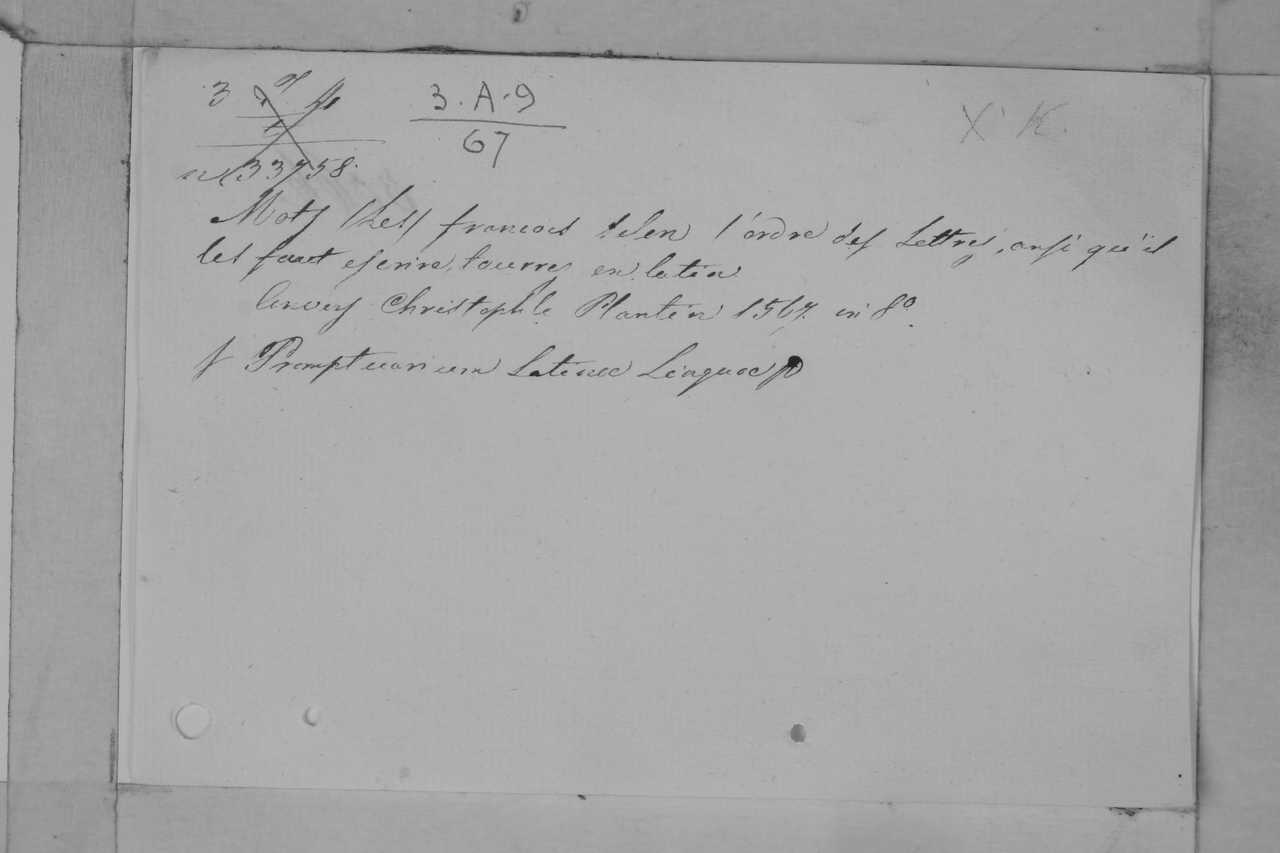 3
3.A.9
67
33758
X K.
Mots (Les) francois selon l'ordre des Lettres, ansi qu'il
les faut escrire, tournes en latin
Anvers Christophle Plantin 1567. in 8º.
f Promptuarium Latinae Linguae